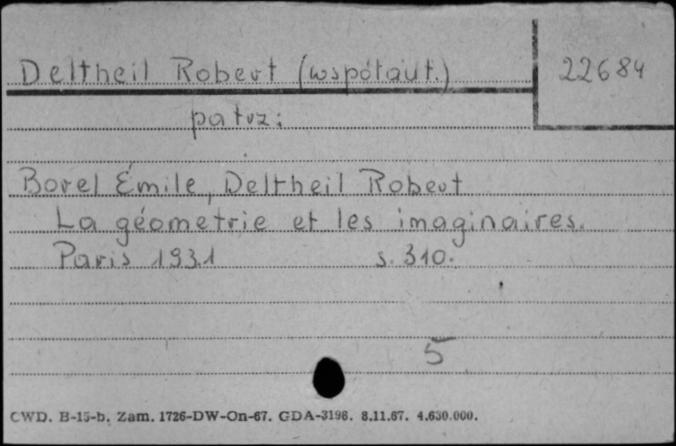 Deltheil Robert (współaut.)
22684
patrz:
Borel Émile, Deltheil Robert
La géometrie et les imaginaires.
Paris 1931 s. 310.
5
CWD. B-15-b. Zam. 1726-DW-On-67. GDA-3198. 8.11.67. 4.650.000.